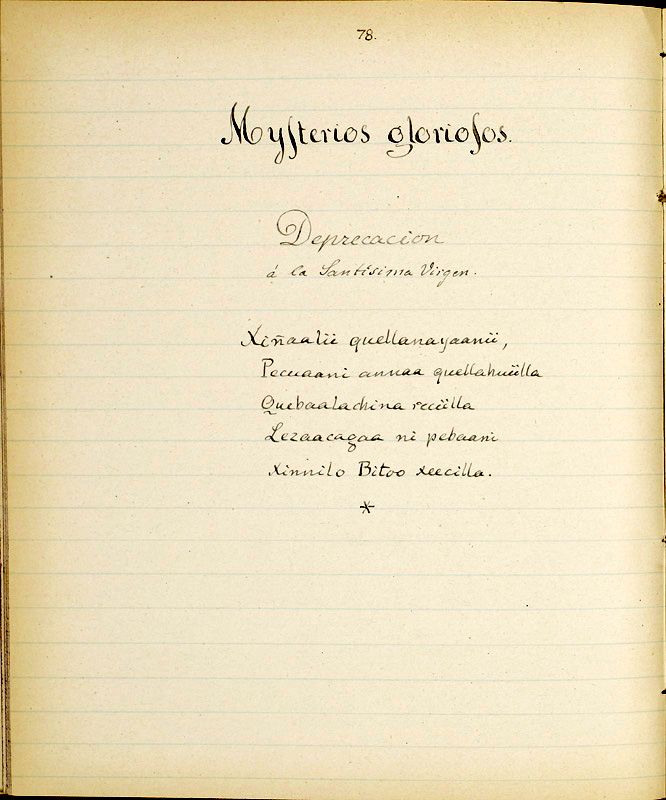 78.
Mysterios gloriosos.
Deprecacion
á la Santísima Virgen.
Xiñaalii quellanayaanii,
Pecuaani annaa quellahuiilla
Quebaalachina reciilla
Lezaacagaa ni pebaani
xinnilo Bitoo xeecilla.
*